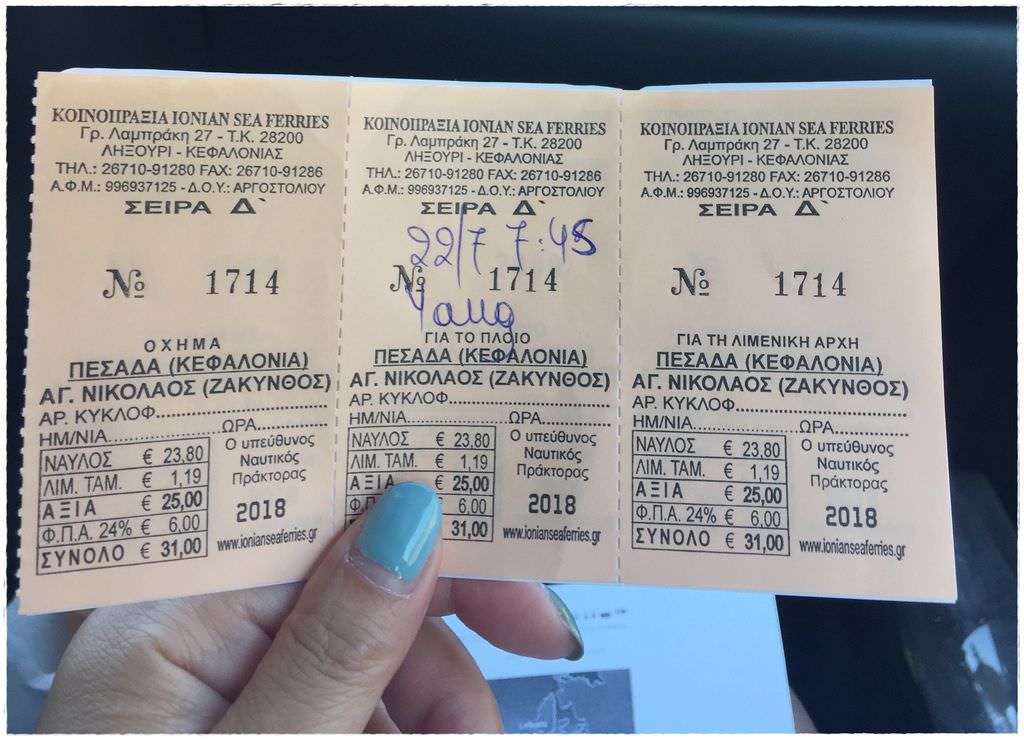 ΚΟΙΝΟΠΡΑΞΙΑ IONIAN SEA FERRIES
Γρ. Λαμπράκη 27 - Τ.Κ. 28200
ΛΗΞΟΥΡΙ - ΚΕΦΑΛΟΝΙΑΣ
ΤΗΛ.: 26710-91280 FAX: 26710-91286
Α.Φ.Μ.: 996937125 - Δ.Ο.Υ.: ΑΡΓΟΣΤΟΛΙΟΥ
ΣΕΙΡΑ Δ`
№ 1714
ΟΧΗΜΑ
ΠΕΣΑΔΑ (ΚΕΦΑΛΟΝΙΑ)
ΑΓ. ΝΙΚΟΛΑΟΣ (ΖΑΚΥΝΘΟΣ)
ΑΡ. ΚΥΚΛΟΦ..............................
ΗΜ/ΝΙΑ....................ΩΡΑ..............
ΝΑΥΛΟΣ € 23,80
ΛΙΜ. ΤΑΜ. € 1,19
ΑΞΙΑ € 25,00
Φ.Π.Α. 24% € 6,00
ΣΥΝΟΛΟ € 31,00
Ο υπεύθυνος
Ναυτικός
Πράκτορας
2018
www.ionianseaferries.gr
ΚΟΙΝΟΠΡΑΞΙΑ IONIAN SEA FERRIES
Γρ. Λαμπράκη 27 - Τ.Κ. 28200
ΛΗΞΟΥΡΙ - ΚΕΦΑΛΟΝΙΑΣ
ΤΗΛ.: 26710-91280 FAX: 26710-91286
Α.Φ.Μ.: 996937125 - Δ.Ο.Υ.: ΑΡΓΟΣΤΟΛΙΟΥ
ΣΕΙΡΑ Δ`
22/7 7:45
№ 1714
Yang
ΓΙΑ ΤΟ ΠΛΟΙΟ
ΠΕΣΑΔΑ (ΚΕΦΑΛΟΝΙΑ)
ΑΓ. ΝΙΚΟΛΑΟΣ (ΖΑΚΥΝΘΟΣ)
ΑΡ. ΚΥΚΛΟΦ..............................
ΗΜ/ΝΙΑ....................ΩΡΑ..............
ΝΑΥΛΟΣ € 23,80
ΛΙΜ. ΤΑΜ. € 1,19
ΑΞΙΑ € 25,00
6,00
31,00
Ο υπεύθυνος
Ναυτικός
Πράκτορας
2018
www.ionianseaferries.gr
ΚΟΙΝΟΠΡΑΞΙΑ IONIAN SEA FERRIES
Γρ. Λαμπράκη 27 - Τ.Κ. 28200
ΛΗΞΟΥΡΙ - ΚΕΦΑΛΟΝΙΑΣ
ΤΗΛ.: 26710-91280 FAX: 26710-91286
Α.Φ.Μ.: 996937125 - Δ.Ο.Υ.: ΑΡΓΟΣΤΟΛΙΟΥ
ΣΕΙΡΑ Δ`
№ 1714
ΓΙΑ ΤΗ ΛΙΜΕΝΙΚΗ ΑΡΧΗ
ΠΕΣΑΔΑ (ΚΕΦΑΛΟΝΙΑ)
ΑΓ. ΝΙΚΟΛΑΟΣ (ΖΑΚΥΝΘΟΣ)
ΑΡ. ΚΥΚΛΟΦ..............................
ΗΜ/ΝΙΑ....................ΩΡΑ..............
ΝΑΥΛΟΣ € 23,80
ΛΙΜ. ΤΑΜ. € 1,19
ΑΞΙΑ € 25,00
Φ.Π.Α. 24% € 6,00
ΣΥΝΟΛΟ € 31,00
Ο υπεύθυνος
Ναυτικός
Πράκτορας
2018
www.ionianseaferries.gr